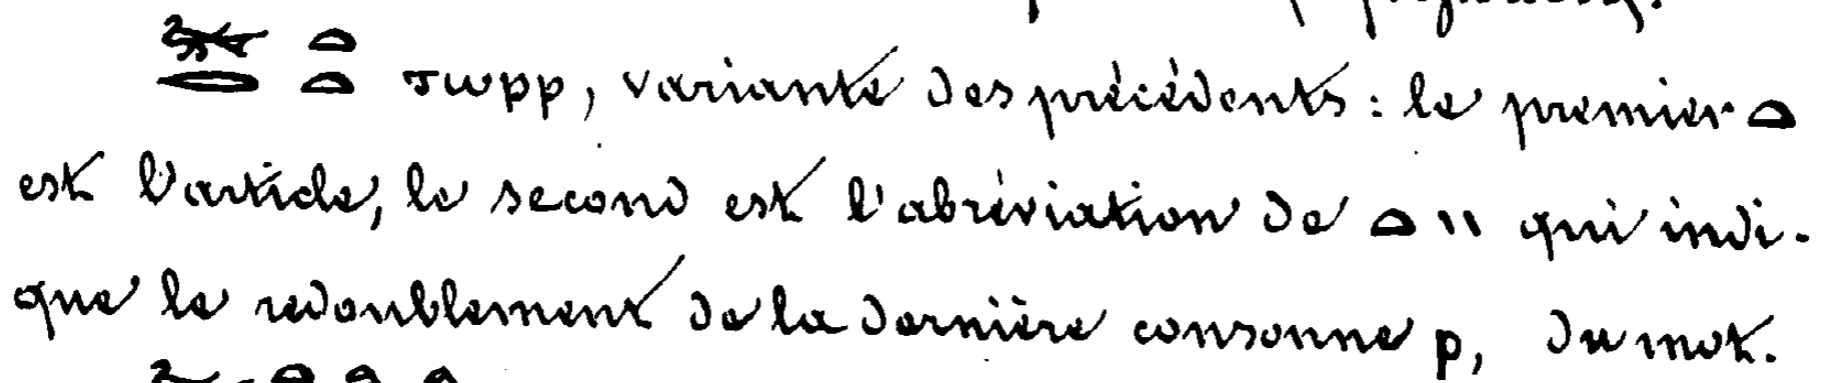 𓏏𓏏 ⲧⲱⲣⲣ, variante des précédents : le premier 𓏏
est l'article, le second est l'abréviation de 𓏏 \\ qui indi-
que le redoublement de la dernière consonne ⲣ, du mot.